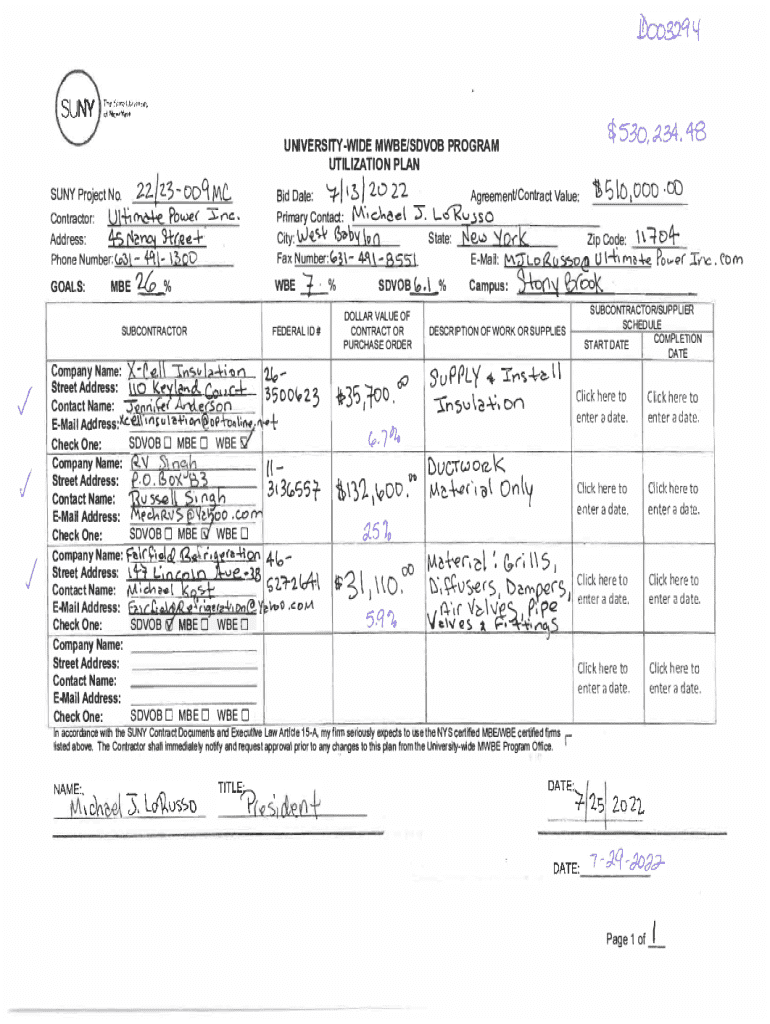 D003294
SUNY The State University of New York
$530,234.48
UNIVERSITY-WIDE MWBE/SDVOB PROGRAM
UTILIZATION PLAN
SUNY Project No. 22/23-009MC Bid Date: 7/13/2022 Agreement/Contract Value: $510,000.00
Contractor: Ultimate Power Inc. Primary Contact: Michael J. LoRusso
Address: 45 Nancy Street City: West Babylon State: New York Zip Code: 11704
Phone Number: 631-491-1300 Fax Number: 631-491-8551 E-Mail: MJLoRusso@UltimatePowerInc.com
GOALS: MBE 26 % WBE 7. % SDVOB 6.1 % Campus: Stony Brook
SUBCONTRACTOR FEDERAL ID # DOLLAR VALUE OF CONTRACT OR PURCHASE ORDER DESCRIPTION OF WORK OR SUPPLIES SUBCONTRACTOR/SUPPLIER SCHEDULE START DATE COMPLETION DATE
Company Name: X-Cell Insulation 26-3500623 $35,700.00 Supply & Install Insulation
Street Address: 110 Keyland Court Click here to enter a date. Click here to enter a date.
Contact Name: Jennifer Anderson
E-Mail Address: Xcellinsulation@optonline.net
Check One: SDVOB ☐ MBE ☐ WBE ☑ 6.7%
Company Name: RV Singh 11-3136557 $132,600.00 Ductwork Material Only
Street Address: P.O. Box B3 Click here to enter a date. Click here to enter a date.
Contact Name: Russell Singh
E-Mail Address: MechRVS@Yahoo.com
Check One: SDVOB ☐ MBE ☑ WBE ☐ 25%
Company Name: Fairfield Refrigeration 46-5272641 $31,110.00 Material: Grills, Diffusers, Dampers, Air Valves, Pipe Valves & Fittings
Street Address: 147 Lincoln Ave-3B Click here to enter a date. Click here to enter a date.
Contact Name: Michael Kost
E-Mail Address: FairfieldRefrigeration@Yahoo.com
Check One: SDVOB ☑ MBE ☐ WBE ☐ 5.9%
Company Name:
Street Address: Click here to enter a date. Click here to enter a date.
Contact Name:
E-Mail Address:
Check One: SDVOB ☐ MBE ☐ WBE ☐
In accordance with the SUNY Contract Documents and Executive Law Article 15-A, my firm seriously expects to use the NYS certified MBE/WBE certified firms
listed above. The Contractor shall immediately notify and request approval prior to any changes to this plan from the University-wide MWBE Program Office.
NAME: Michael J. LoRusso TITLE: President DATE: 7/25/2022
DATE: 7-29-2022
Page 1 of 1